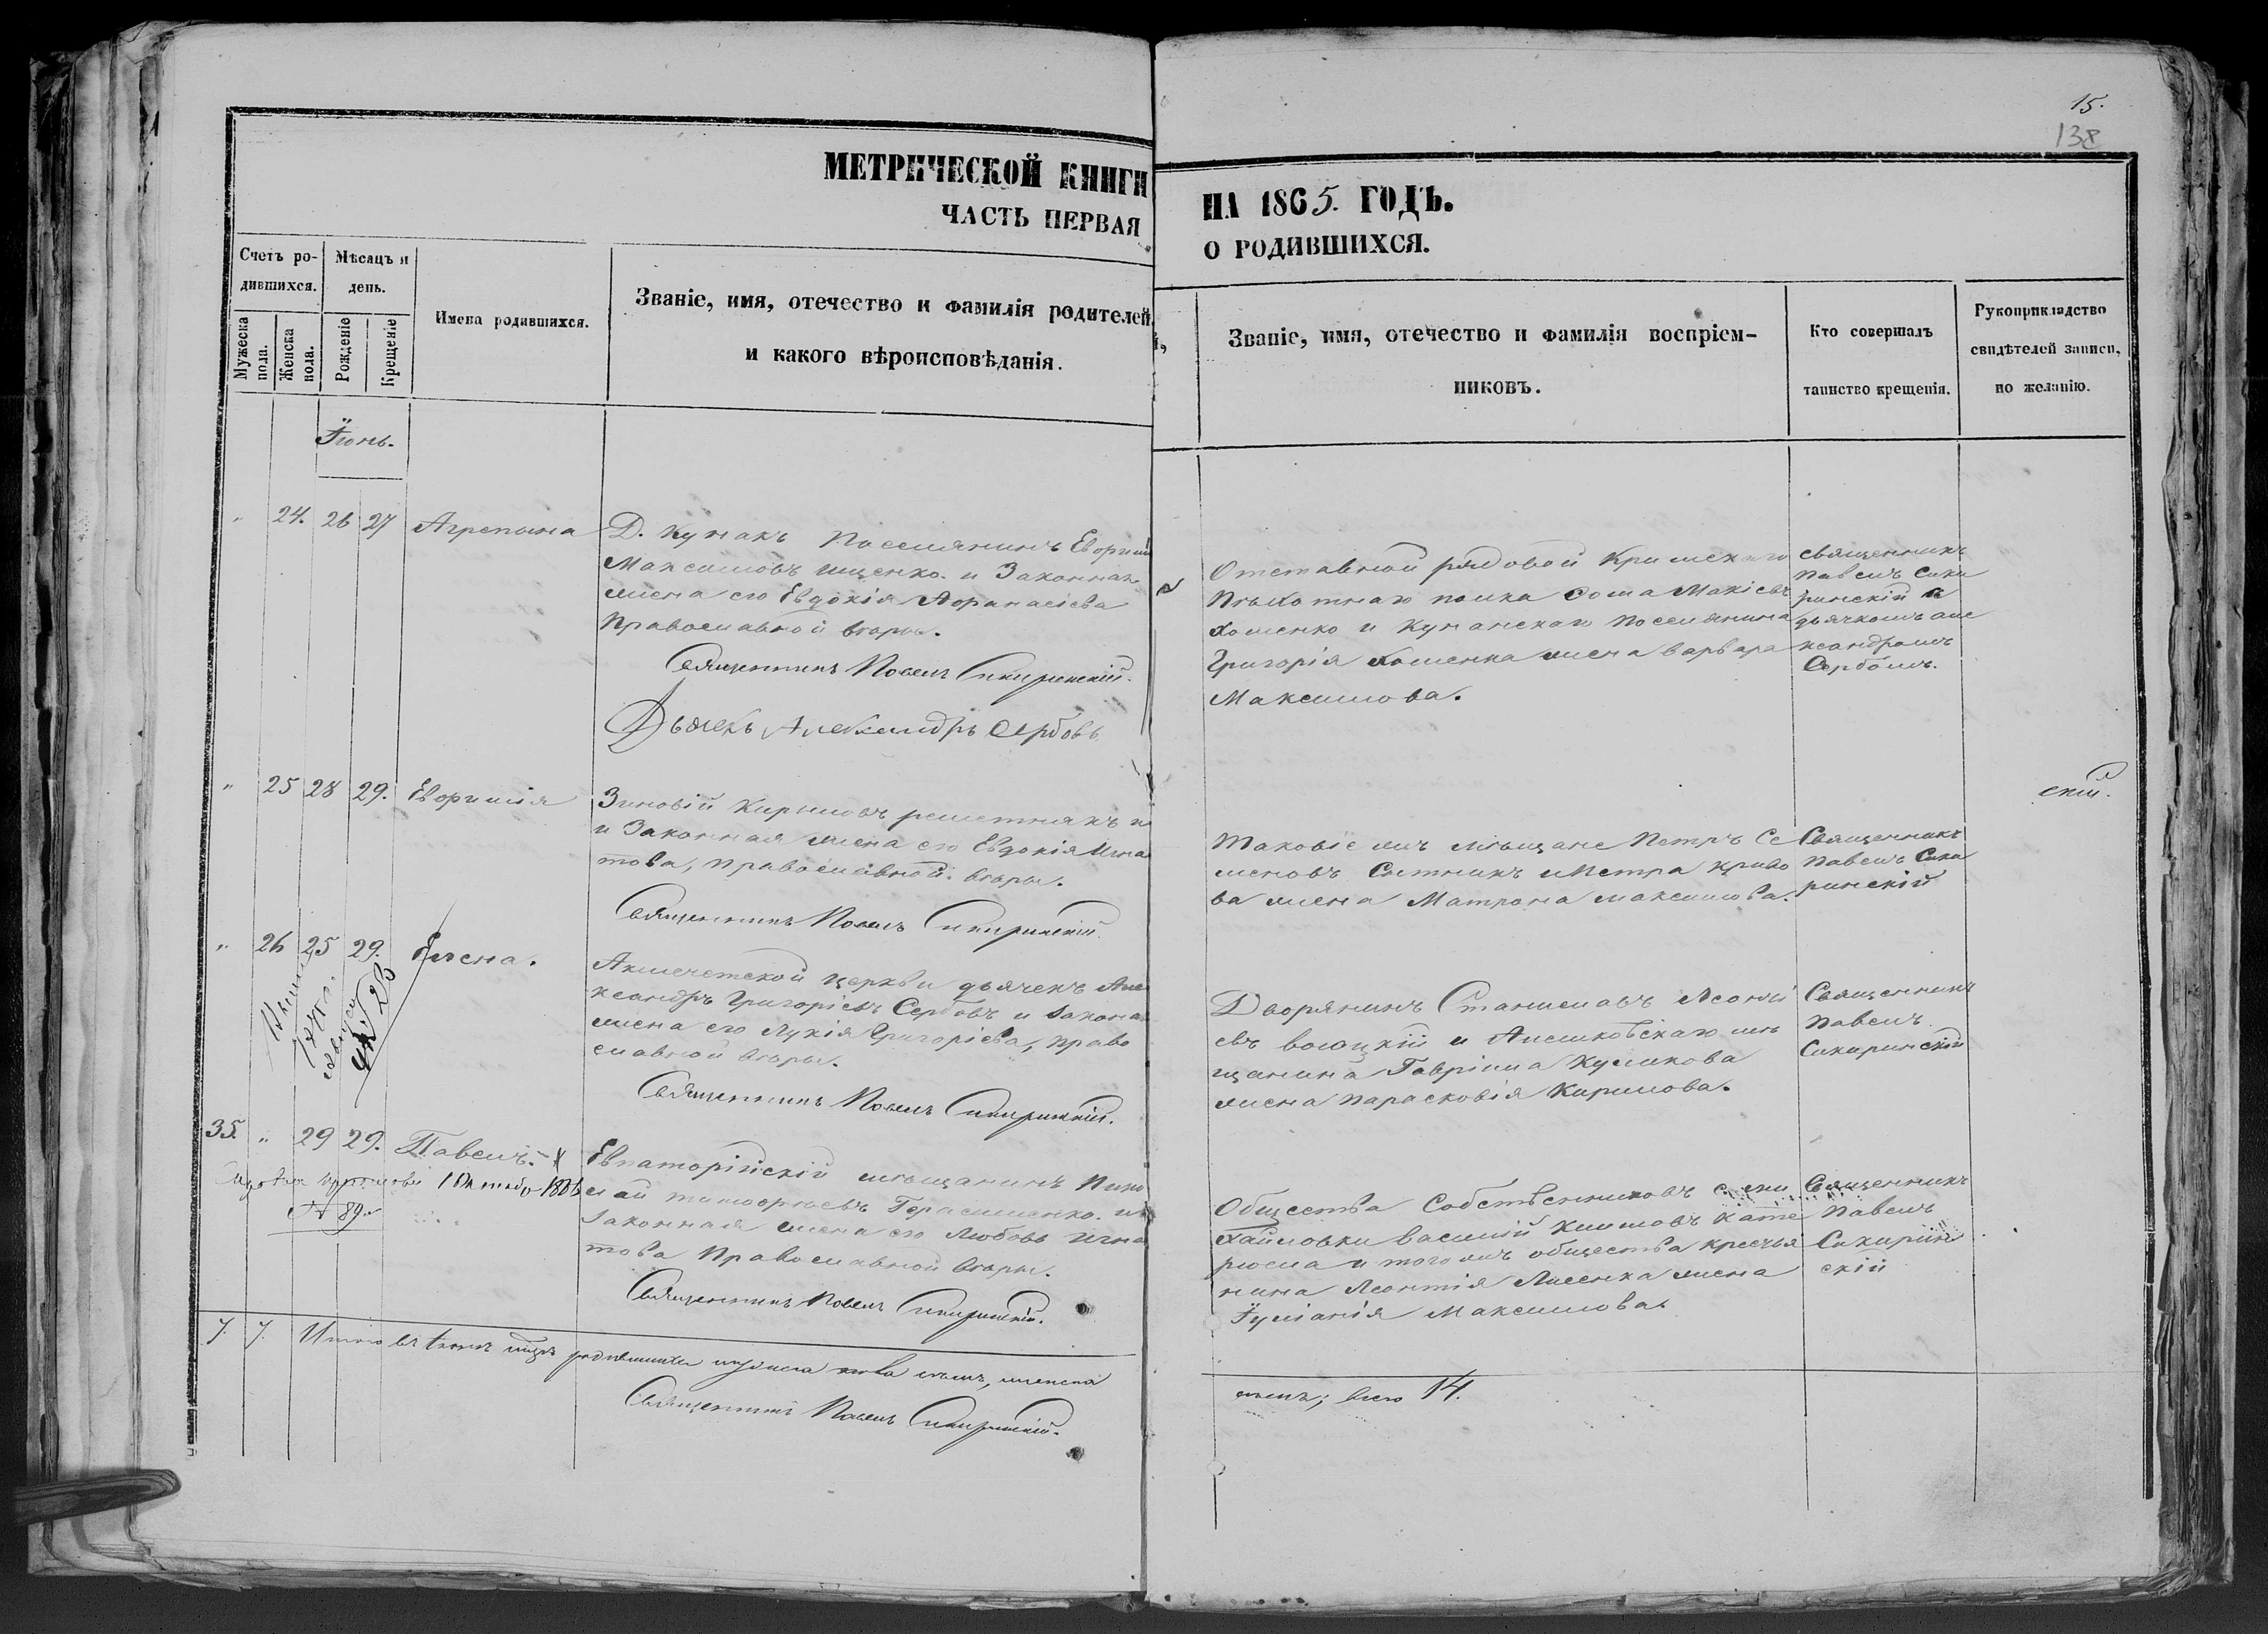 15.
138
МЕТРИЧЕСКОЙ КНИГИ
ЧАСТЬ ПЕРВАЯ
НА 1865. ГОДЪ.
О РОДИВШИХСЯ.
Счетъ ро-
дившихся.
Мужеска пола.
Женска пола.
Мѣсяцъ и
день.
Рожденіе
Крещеніе
Имена родившихся.
Званіе, имя, отечество и фамилія родителей,
и какого вѣроисповѣданія.
Званіе, имя, отечество и фамилія воспріем-
никовъ.
Кто совершалъ
таинство крещенія.
Рукоприкладство
свидѣтелей записи,
по желанію.
Іюнь.
" 24. 26 27 Агрепына
Д. Кунакъ Поселянинъ Евфимій
Максимовъ Ищенко. и Законная
жена его Евдокія Афанасіева
Православной вѣры.
Священникъ Павелъ Сикиринскій.
Дьячекъ Александръ Сербовъ
Отставной рядовой Крымскаго
Пѣхотнаго полка Фома Макіевъ
Хоменко и Кунанскаго поселянина
Григорія Хоменка жена Варвара
Максимова.
Священникъ
Павелъ Сики
ринскій с
дьячкомъ але
ксандромъ
Сербомъ.
" 25 28 29. Евфимія
Зиновій Кириловъ решетнякъ и
и Законная жена его Евдокія Игна
това, православной вѣры.
Священникъ Павелъ Сикиринскій.
Таковіе жъ мѣщане Петръ Се
меновъ Сытникъ и Петра криво
ва жена Матрона Максимова.
Священникъ
Павелъ Сики
ринскій
скій.
" 26 25 29. Елена.
Акмечетской церкви дьячекъ Але
ксандръ Григоріевъ Сербовъ и Законая
жена его Лукія Григоріева, право
славной вѣры.
Священникъ Павелъ Сикиринскій.
Дворянинъ Станиславъ Леонті
евъ
щанина Гавріила Куликова
жена Парасковія Кирилова.
Священникъ
Павелъ
Сикиринскій
35. " 29 29. Павелъ.
№ 89
Евпаторійскій мѣщанинъ Нико
лай Тимофѣевъ Герасименко. и
Законная жена его Любовь Игна
това Православной вѣры.
Священникъ Павелъ Сикиринскій.
Общества Собственниковъ
Василій Климовъ Кате
рюша и того жъ общества крестья
нина Леонтія Лисенка жена
Іуліанія Максимова
Священникъ
Павелъ
Сикирин
скій
7. 7. Итого въ Іюнѣ мцѣ родившихся мужеска пола семь, женска
Священникъ Павелъ Сикиринскій.
семь; всего 14.